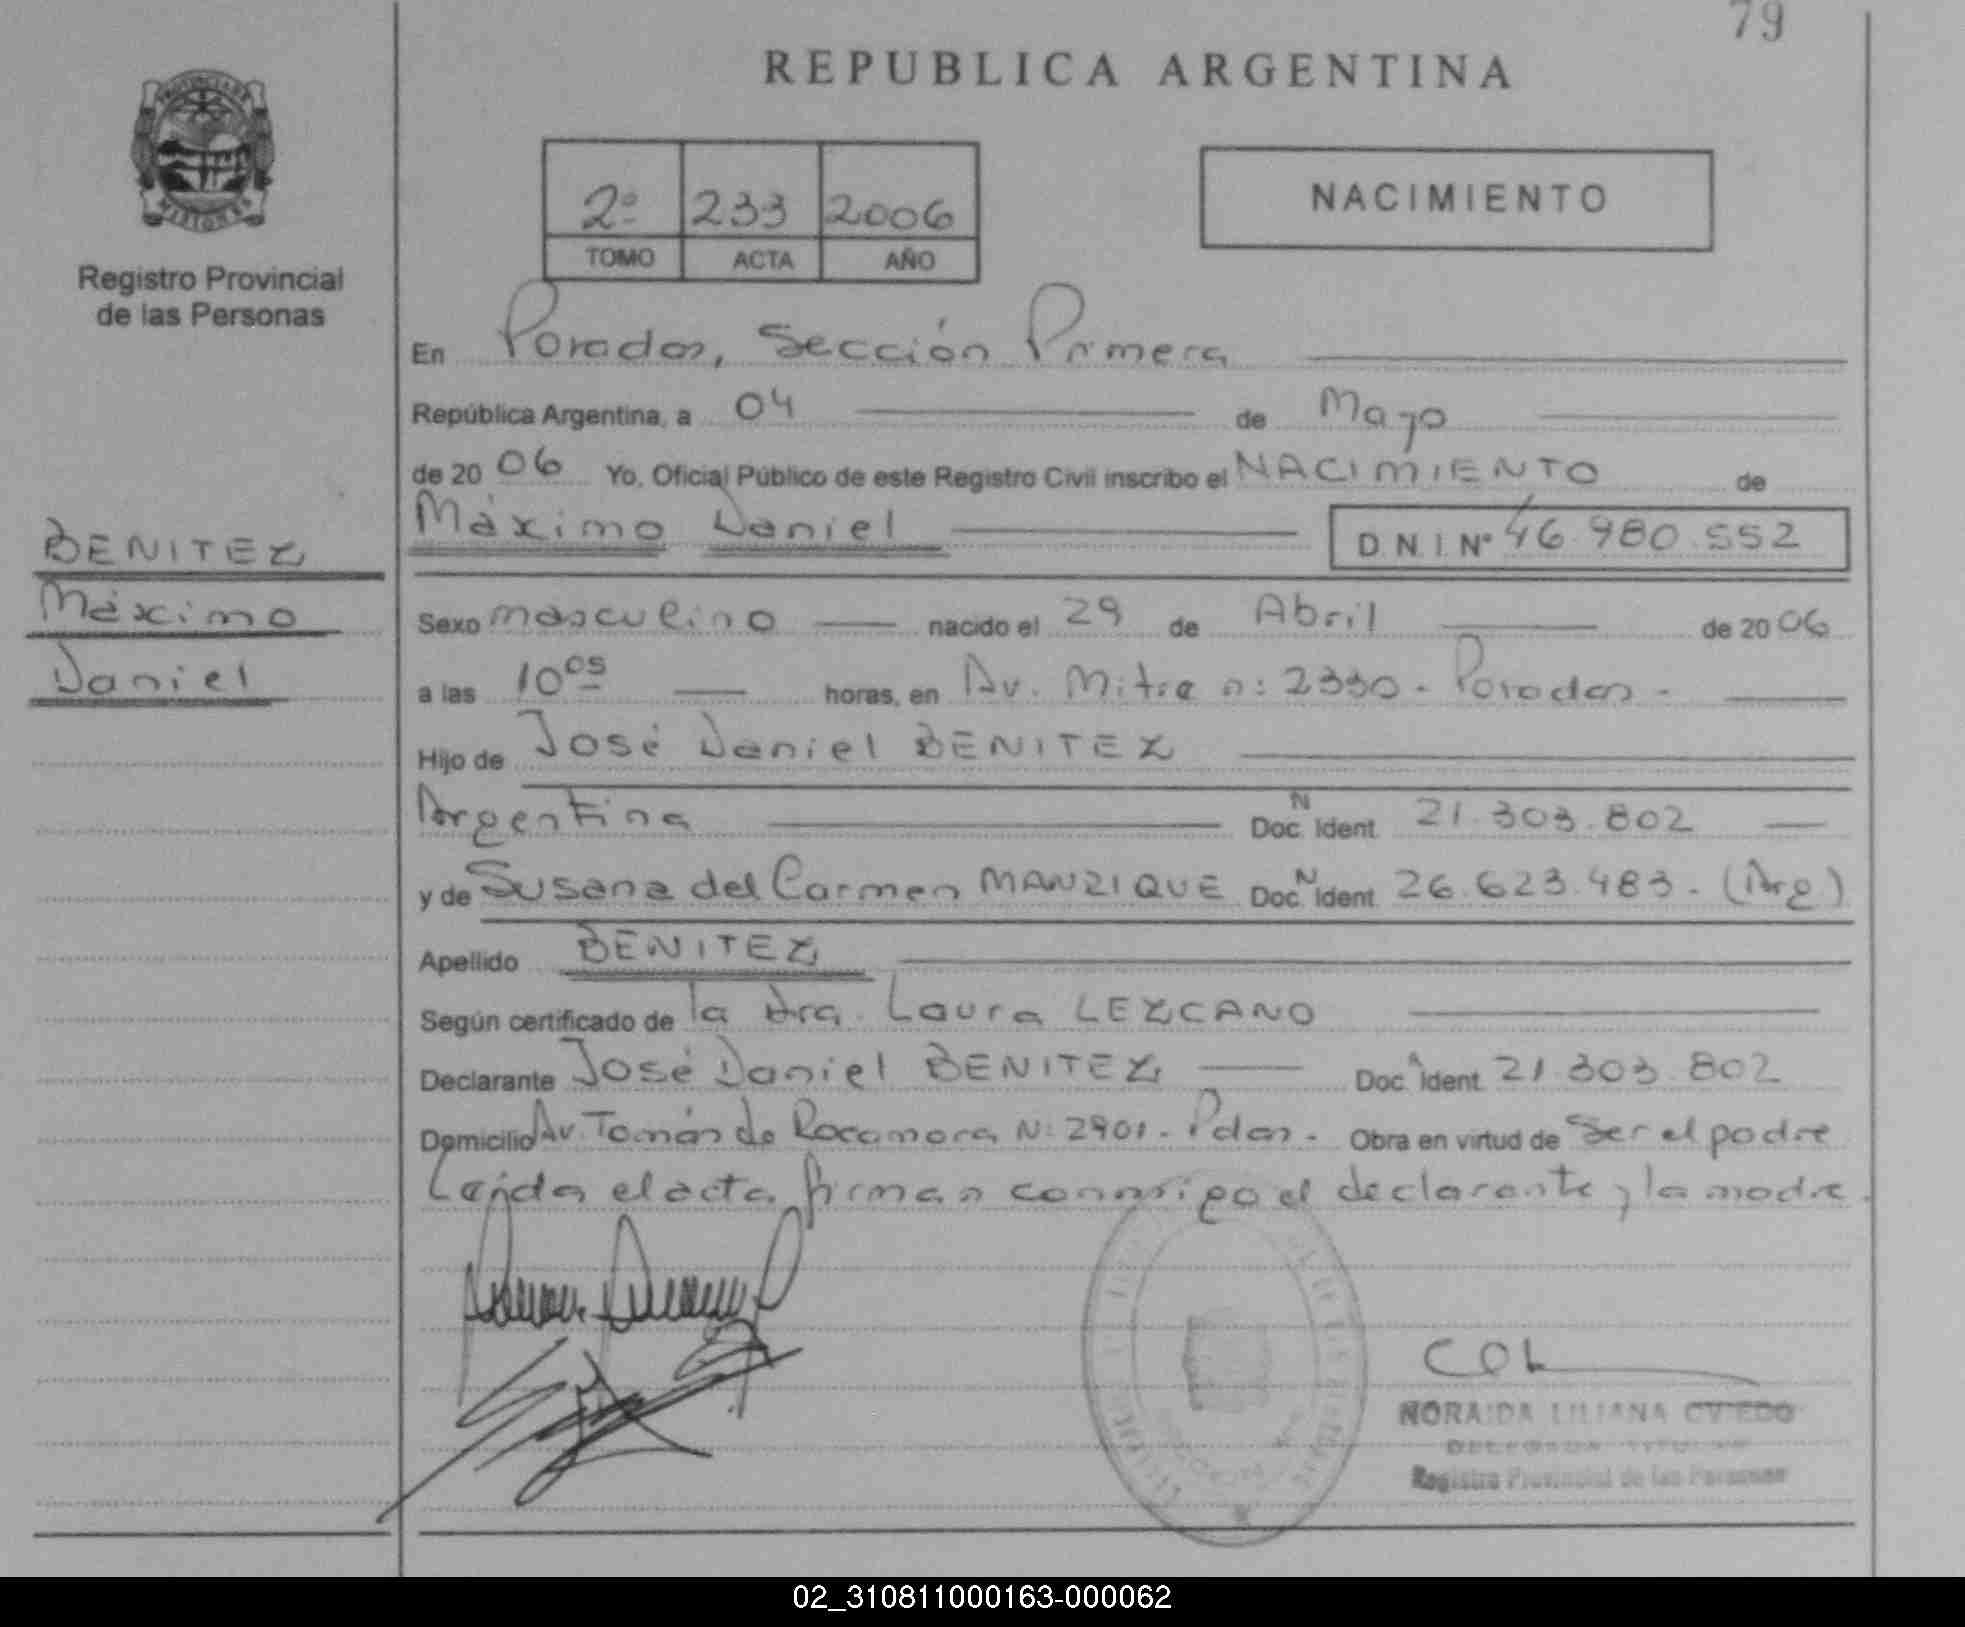 79
REPUBLICA ARGENTINA
PROVINCIA DE
MISIONES
Registro Provincial
de las Personas
2º 233 2006
TOMO ACTA AÑO
NACIMIENTO
En Posadas, Sección Primera
República Argentina, a 04 de Mayo
de 20 06 Yo, Oficial Público de este Registro Civil inscribo el NACIMIENTO de
Máximo Daniel D N I Nº 46.980.552
BENITEZ
Máximo
Daniel
Sexo masculino nacido el 29 de Abril de 20 06
a las 10 05 horas, en Av. Mitre n: 2330 - Posadas -
Hijo de José Daniel BENITEZ
Argentina Doc. N Ident 21.303.802
y de Susana del Carmen MANZIQUE Doc. N Ident 26.623.483 - (Arg)
Apellido BENITEZ
Según certificado de la dra. Laura LEZCANO
Declarante José Daniel BENITEZ Doc Ident 21.303.802
Domicilio Av. Tomás de Rocamora N: 2901 - Pdas - Obra en virtud de Ser el padre
Leída el acta firman conmigo el declarante y la madre.
NORAIDA LILIANA OVIEDO
DELEGADA TITULAR
Registro Provincial de las Personas
02_310811000163-000062